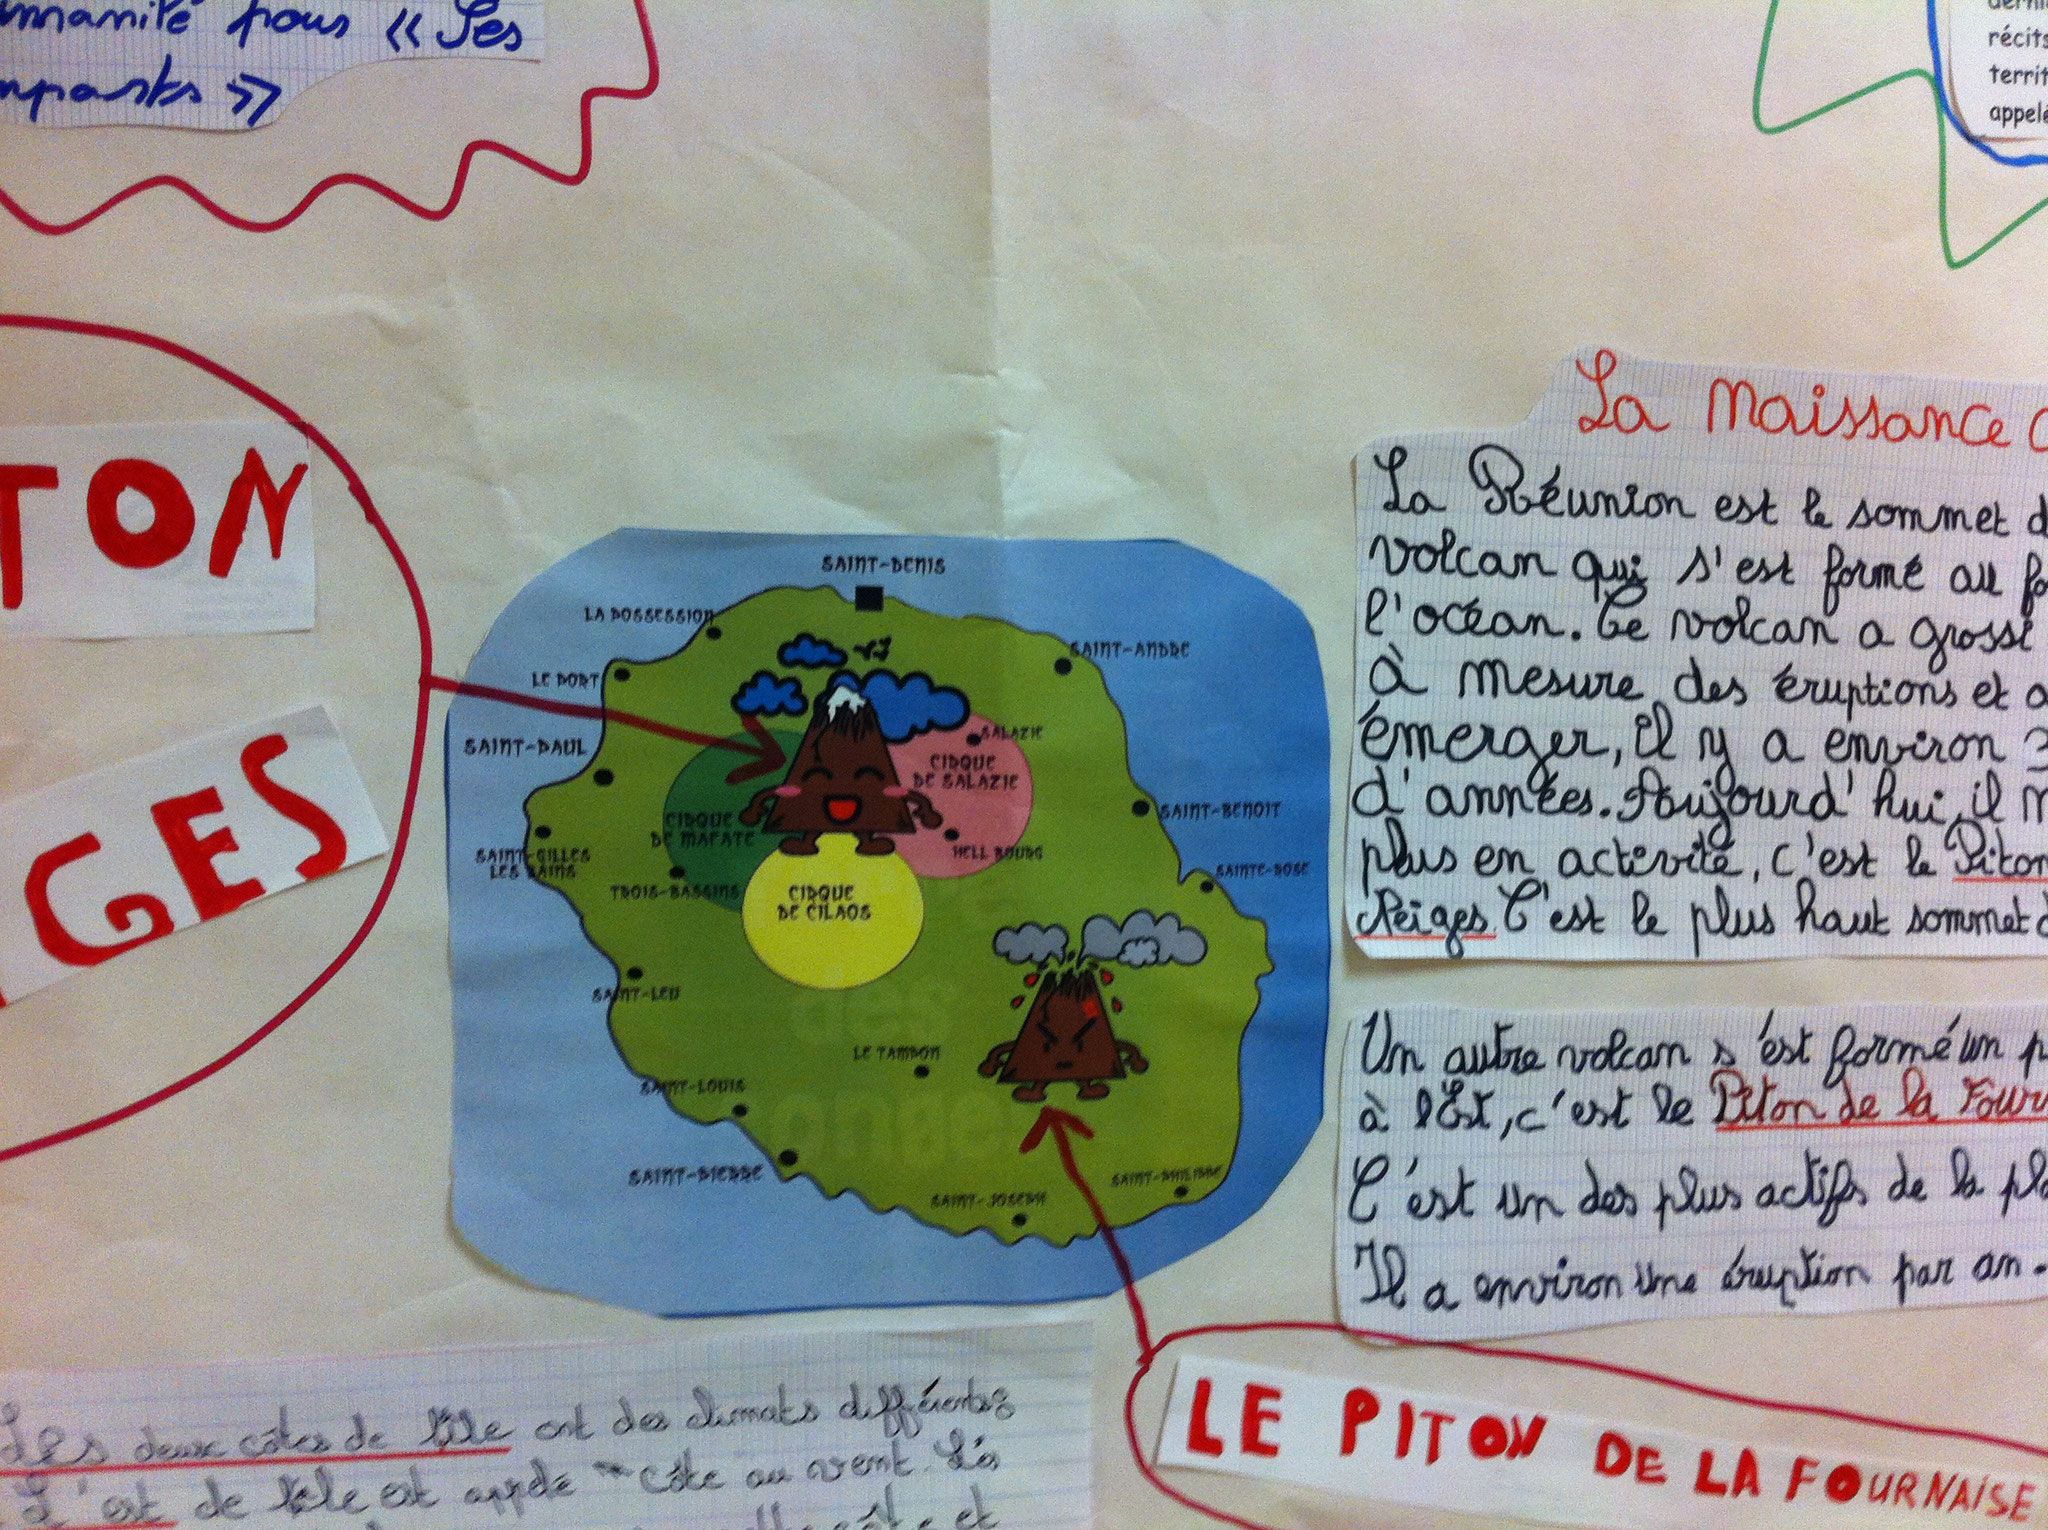 pous « Ses
»
récits
territ
appelé
TON
GES
SAINT-DENIS
LA POSSESSION
SAINT-ANDRE
LE PORT
SALAZIE
SAINT-PAUL
CIRQUE
DE SALAZIE
CIRQUE
DE MAFATE
SAINT-BENOIT
SAINT-GILLES
LES BAINS
HELL BOURG
SAINTE-ROSE
TROIS-BASSINS
CIRQUE
DE CILAOS
SAINT-LEU
LE TAMPON
SAINT-LOUIS
SAINT-PIERRE
SAINT-JOSEPH
SAINT-PHILIPPE
La Naissance
La Réunion est le sommet d
volcan qui s'est formé au fo
l'océan. Ce volcan a grossi
à mesure des éruptions et a
émerger, il y a environ 3
d'années. Aujourd'hui, il n
plus en activité, c'est le Piton
Neiges. C'est le plus haut sommet d
Un autre volcan s'est formé un p
à l'Est, c'est le Piton de la Four
C'est un des plus actifs de la pla
Il a environ une éruption par an.
LE PITON DE LA FOURNAISE
Les deux côtes de l'île ont des climats différents:
L'est de l'île est appelé "côte au vent. Les
et